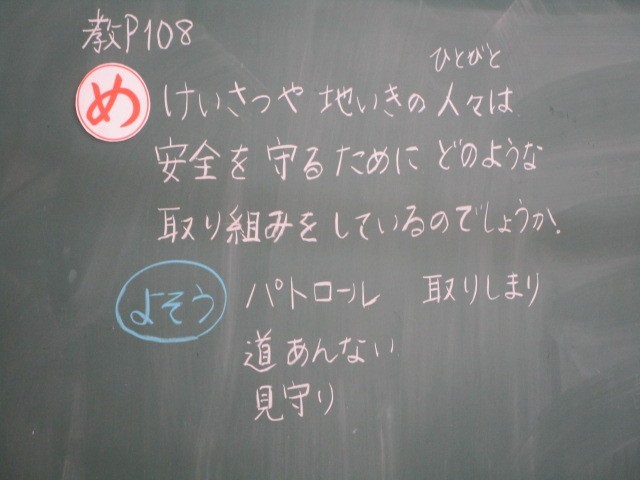 教P108
ひとびと
め けいさつや 地いきの 人々は
安全を 守るために どのような
取り組みをしているのでしょうか.
よそう パトロール 取りしまり
道あんない
見守り